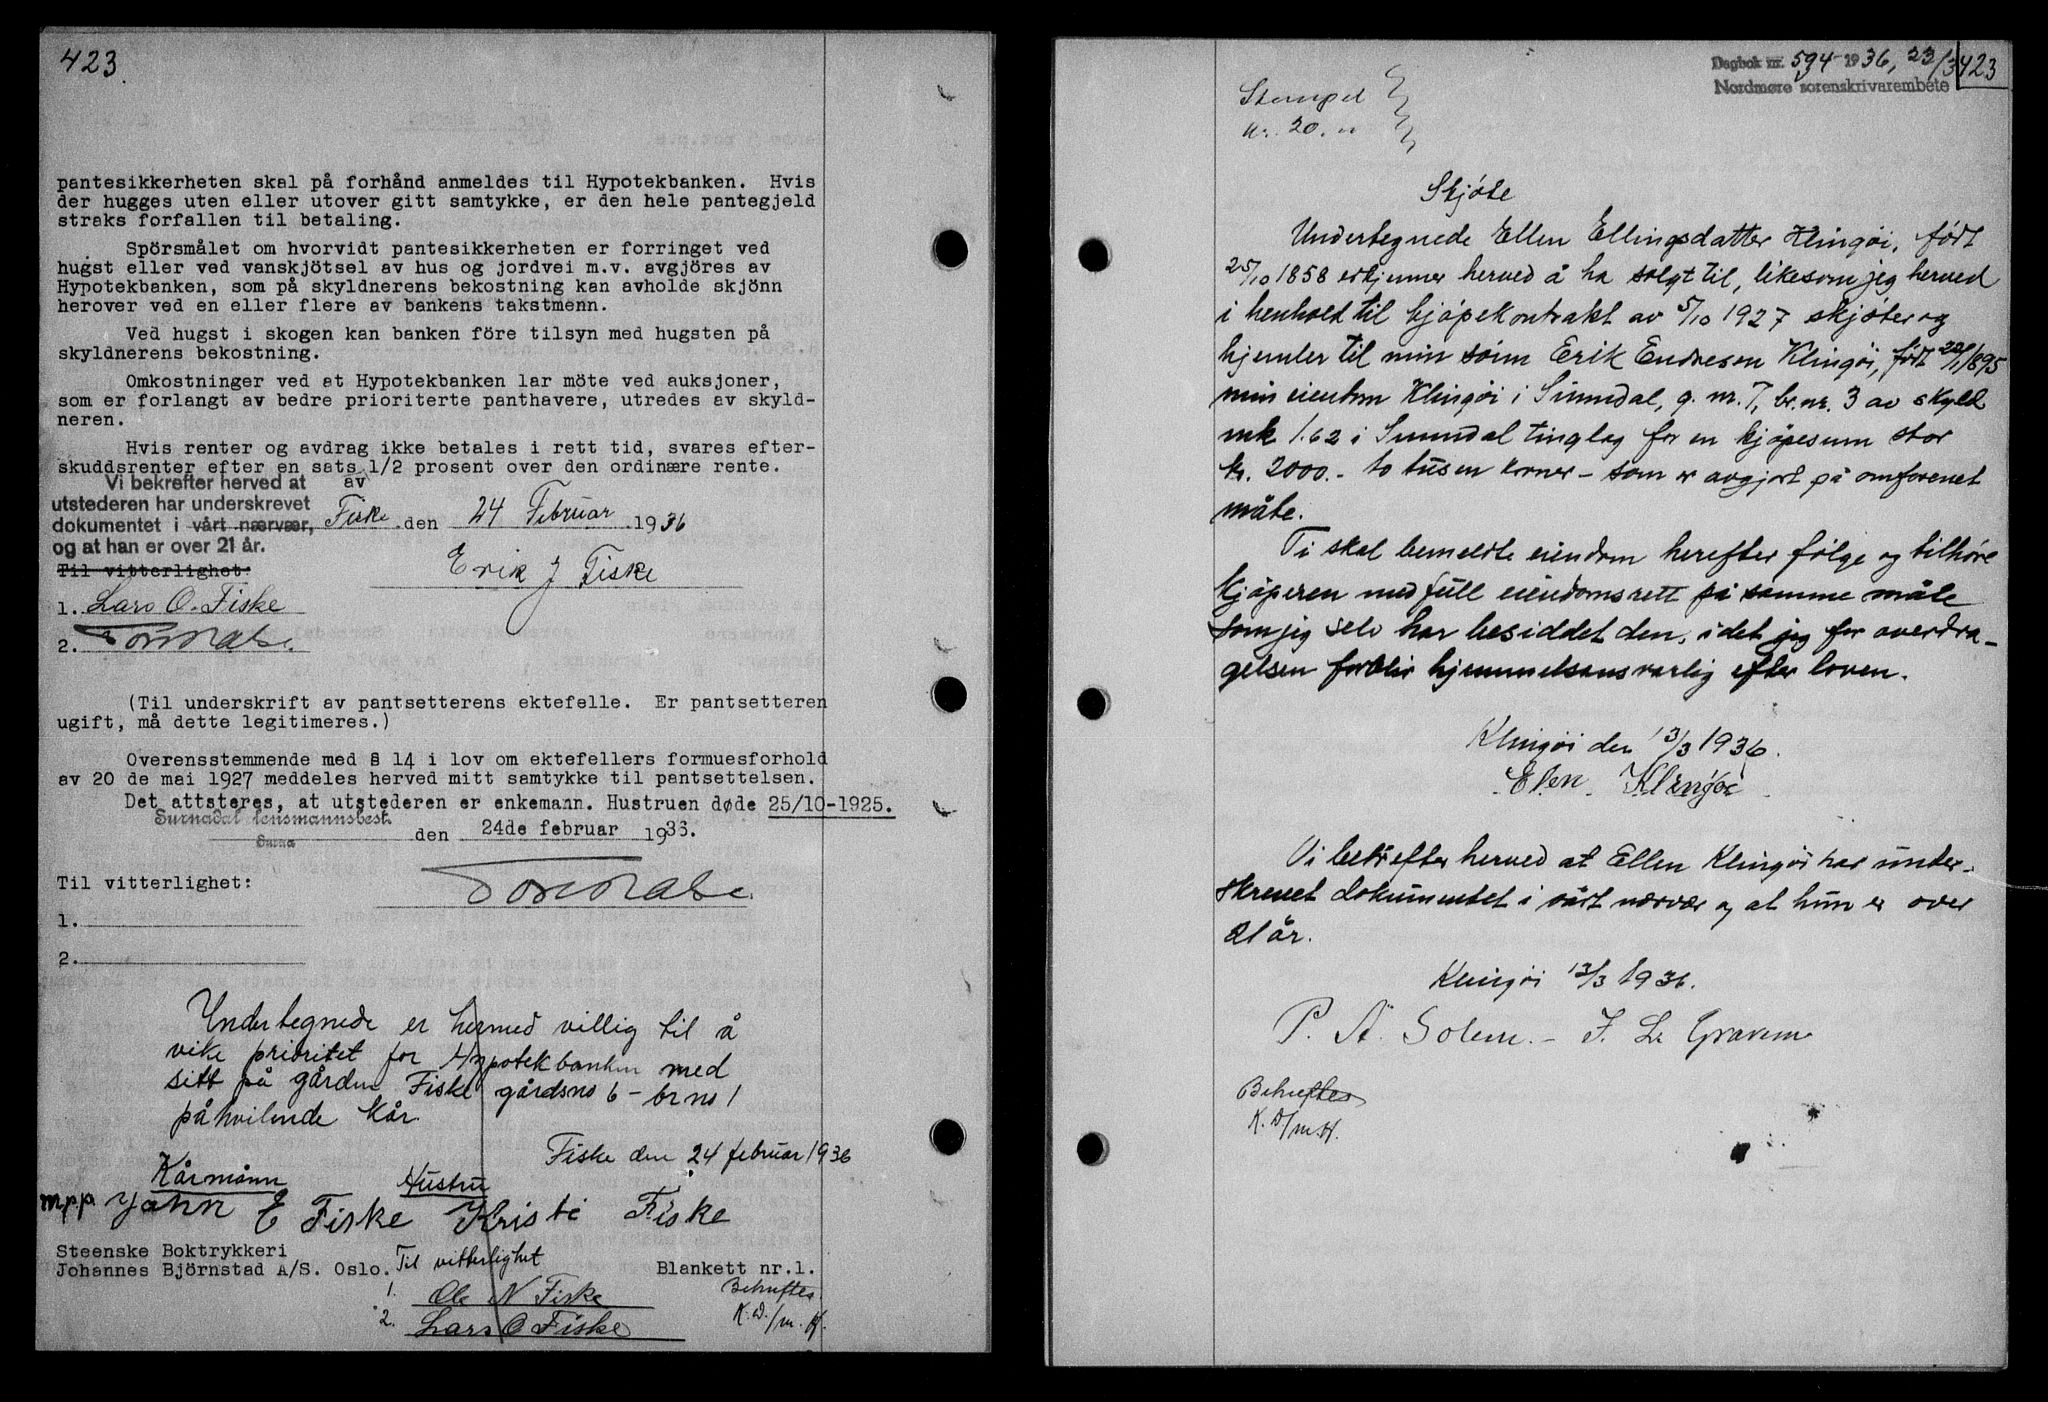 423.
pantesikkerheten skal på forhånd anmeldes til Hypotekbanken. Hvis
der hugges uten eller utover gitt samtykke, er den hele pantegjeld
straks forfallen til betaling.
Spörsmålet om hvorvidt pantesikkerheten er forringet ved
hugst eller ved vanskjötsel av hus og jordvei m.v. avgjöres av
Hypotekbanken, som på skyldnerens bekostning kan avholde skjönn
herover ved en eller flere av bankens takstmenn.
Ved hugst i skogen kan banken före tilsyn med hugsten på
skyldnerens bekostning.
Omkostninger ved at Hypotekbanken lar möte ved auksjoner,
som er forlangt av bedre prioriterte panthavere, utredes av skyld-
neren.
Hvis renter og avdrag ikke betales i rett tid, svares efter-
skuddsrenter efter en sats 1/2 prosent over den ordinære rente.
Vi bekrefter herved at av
utstederen har underskrevet
dokumentet i vårt nærvær, Fiske den 24 Februar 1936
og at han er over 21 år.
Til vitterlighet: Erik J Fiske
1. Lars O. Fiske
2.
(Til underskrift av pantsetterens ektefelle. Er pantsetteren
ugift, må dette legitimeres.)
Overensstemmende med § 14 i lov om ektefellers formuesforhold
av 20 de mai 1927 meddeles herved mitt samtykke til pantsettelsen.
Det attsteres, at utstederen er enkemann. Hustruen døde 25/10-1925.
Surnadal lensmannsbest.
Surna den 24de februar 1936.
Til vitterlighet:
1.
2.
Undertegnede er hermed villig til å
vike prioritet for Hypotekbanken med
sitt på gården Fiske gårdsno 6 - brno 1
påhvilende kår
Fiske den 24 februar 1936
Kårmånn Hustru
m.p.p. John E Fiske Kristi Fiske
Steenske Boktrykkeri
Johannes Björnstad A/S. Oslo. Til vitterlighet Blankett nr.1.
1. Ole N Fiske Bekreftes.
2. Lars O Fiske K.D./m.H.
Dagbok nr. 594 1936, 23/3 423
Nordmøre sorenskriverembete
Stempel
kr. 20.
Skjøte
Undertegnede Ellen Ellingsdatter Klingøi, født
25/10 1858 erkjenner herved å ha solgt til, likesom jeg herved
i henhold til kjøpekontrakt av 5/10 1927 skjøter og
hjemler til min sønn Erik Endreson Klingøi, født 1895
min eiendom Klingøi i Sunndal, g. nr. 7, br. nr. 3 av skyld
mk 1.62 i Sunndal tinglag for en kjøpesum stor
kr. 2000.- to tusen kroner - som er avgjort på omforenet
måte.
Ti skal bemeldte eiendom herefter følge og tilhøre
kjøperen med full eiendomsrett på samme måte
som jeg selv har besiddet den, idet jeg for overdra-
gelsen forblir hjemmelsansvarlig efter loven.
Klingøi den 13/3 1936.
Elen Klingøi
Vi bekrefter herved at Ellen Klingøi har under-
skrevet dokumentet i vårt nærvær og at hun er over
21 år.
Klingøi 13/3 1936.
P. A. Solem. - J. L. Gravem
Bekreftes
K.D/m.H.